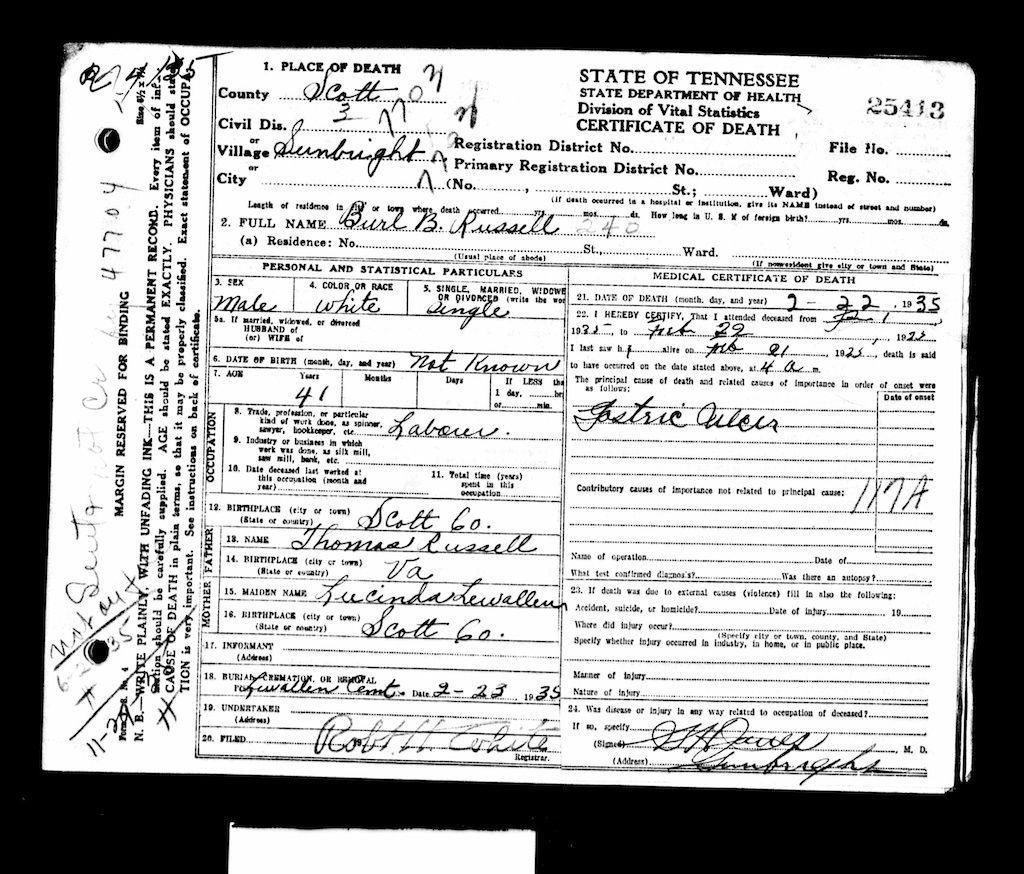 1. PLACE OF DEATH
County Scott
Civil Dis. 3
or
Village Sunbright
or
City (No. , St.; Ward)
STATE OF TENNESSEE
STATE DEPARTMENT OF HEALTH
Division of Vital Statistics
CERTIFICATE OF DEATH
25413
Registration District No. File No.
Primary Registration District No. Reg. No.
(If death occurred in a hospital or institution, give its NAME instead of street and number)
Length of residence in city or town where death occurred yrs. mos. ds. How long in U. S. if of foreign birth? yrs. mos. ds.
2. FULL NAME Burl B. Russell 240
(a) Residence: No. St., Ward.
(Usual place of abode) (If nonresident give city or town and State)
PERSONAL AND STATISTICAL PARTICULARS
3. SEX
Male
4. COLOR OR RACE
White
5. SINGLE, MARRIED, WIDOWE
OR DIVORCED (write the wor
Single
5a. If married, widowed, or divorced
HUSBAND OF
(or) WIFE of
6. DATE OF BIRTH (month, day, and year) Not Known
7. AGE Years Months Days If LESS tha
1 day, hr
or min.
41
OCCUPATION
8. Trade, profession, or particular
kind of work done, as spinner,
sawyer, bookkeeper, etc. Laborer.
9. Industry or business in which
work was done, as silk mill,
saw mill, bank, etc.
10. Date deceased last worked at
this occupation (month and
year)
11. Total time (years)
spent in this
occupation
12. BIRTHPLACE (city or town)
(State or country) Scott Co.
FATHER
13. NAME Thomas Russell
14. BIRTHPLACE (city or town)
(State or country) Va
MOTHER
15. MAIDEN NAME Lucinda Lewallen
16. BIRTHPLACE (city or town)
(State or country) Scott Co.
17. INFORMANT
(Address)
18. BURIAL, CREMATION, OR REMOVAL
Lewallen Cemt. Date 2-23 1935
19. UNDERTAKER
(Address)
20. FILED 19 Robt H. White
Registrar.
MEDICAL CERTIFICATE OF DEATH
21. DATE OF DEATH (month, day, and year) 2-22, 1935
22. I HEREBY CERTIFY, That I attended deceased from
1935, to Feb 22, 1935
I last saw h alive on Feb 21, 1935, death is said
to have occurred on the date stated above, at 4 a m.
The principal cause of death and related causes of importance in order of onset were
as follows:
Date of onset
Gastric Ulcer
Contributory causes of importance not related to principal cause:
117A
Name of operation Date of
What test confirmed diagnosis? Was there an autopsy?
23. If death was due to external causes (violence) fill in also the following:
Accident, suicide, or homicide? Date of injury 19
Where did injury occur?
(Specify city or town, county, and State)
Specify whether injury occurred in industry, in home, or in public place.
Manner of injury
Nature of injury
24. Was disease or injury in any way related to occupation of deceased?
If so, specify
(Signed) M. D.
(Address) Sunbright
MARGIN RESERVED FOR BINDING
N. B.—WRITE PLAINLY, WITH UNFADING INK—THIS IS A PERMANENT RECORD. Every item of inf
mation should be carefully supplied. AGE should be stated EXACTLY. PHYSICIANS should state
CAUSE OF DEATH in plain terms, so that it may be properly classified. Exact statement of OCCUPA
TION is very important. See instructions on back of certificate.
47704